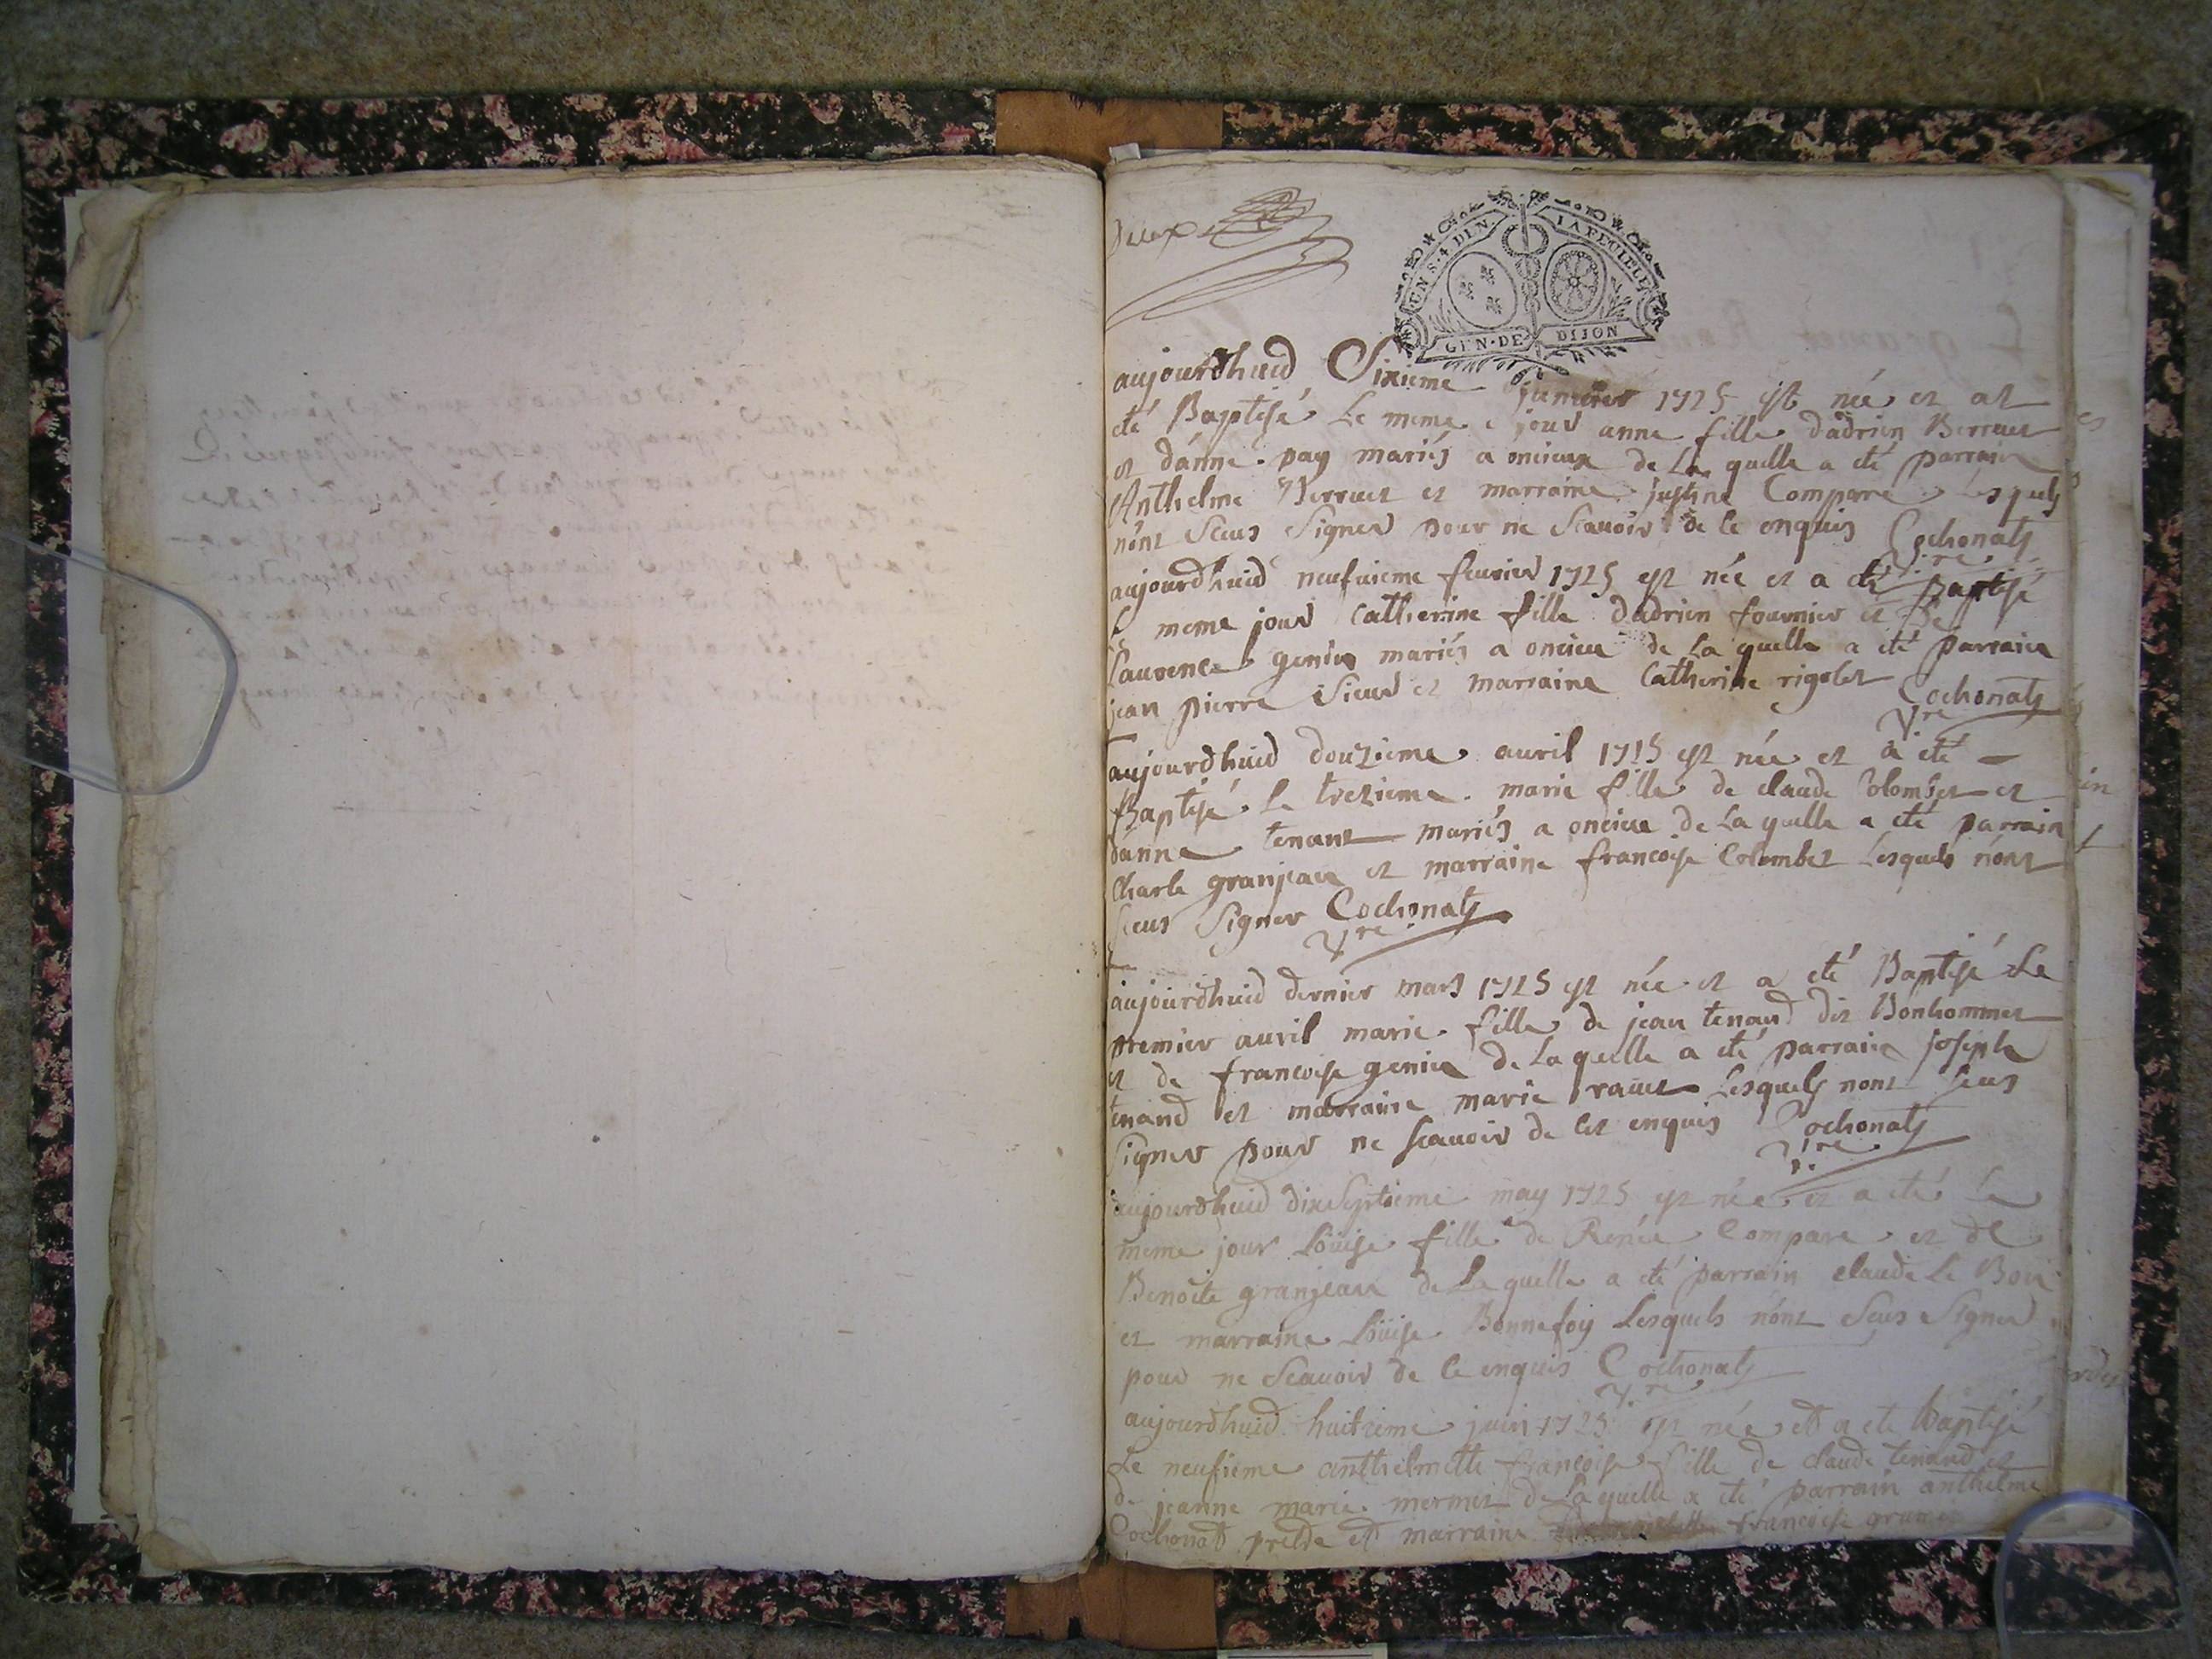 Deux
UN S. 4 DEN. LA FEUILLE
GEN. DE DIJON
aujourdhuid Sixieme janvier 1725 est née et at
été Baptisé Le meme jour anne fille dadrien Berruet
et dánne pay mariés a oncieux de La quelle a été parrain
Anthelme Berruet et marraine justine Comparé Lesquels
nónt Sceus Signer pour ne Scavoir de ce enquis Cochonat
Vre
aujourdhuid neufvieme fevrier 1725 est née et a été Baptisé
Le meme jour Catherine fille dadrien fournier et de
Laurence genin mariés a oncieu de La quelle a été parrain
jean pierre Sieud et marraine Catherine rigolet Cochonat
Vre
aujourdhuid douzieme avril 1725 est née et a été
Baptisé Le trezieme marie fille de claude Colombet et
dánne tenant mariés a oncieu de La quelle a été parrain
Charle granjean et marraine francoise Colombet Lesquels nónt
Sceus Signer Cochonat
Vre
aujourdhuid dernier mars 1725 est née et a été Baptisé Le
premier avril marie fille de jean tenand dit Bonhommet
et de francoise genin de Laquelle a été parrain joseph
tenand et marraine marie ravet Lesquels nont Sceus
Signer pour ne scavoir de cet enquis Cochonat
Vre
aujourdhuid dixseptieme may 1725 est née et a été Le
meme jour Loüise fille de Renée Compare et de
Benoite granjean de La quelle a été parrain claude Le Bon
et marraine Loüise Bonnefoy Lesquels nónt Sceus Signer
pour ne Scavoir de ce enquis Cochonat
Vre
aujourdhuid huitieme juin 1725 est née et a été baptisé
Le neufieme anthelmette francoise fille de claude tenand et
de jeanne marie mermet de La quelle a été parrain anthelme
Cochonat prêtre et marraine francoise